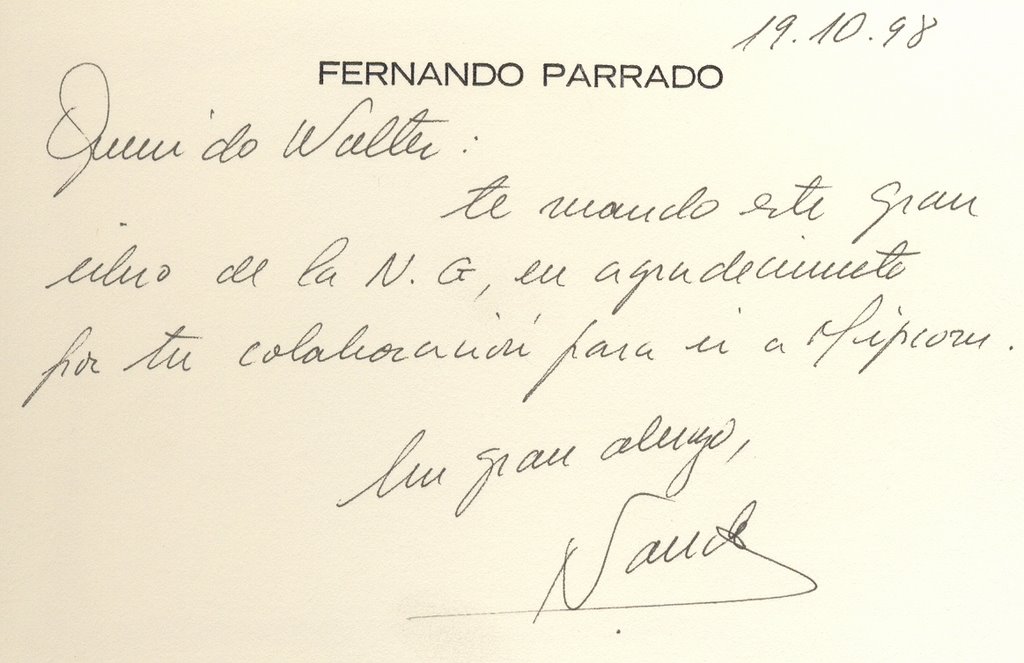 19.10.98
FERNANDO PARRADO
Querido Walter:
te mando este gran
libro de la N.G, en agradecimiento
por tu colaboración para ir a Mipcom.
Un gran abrazo,
Nando